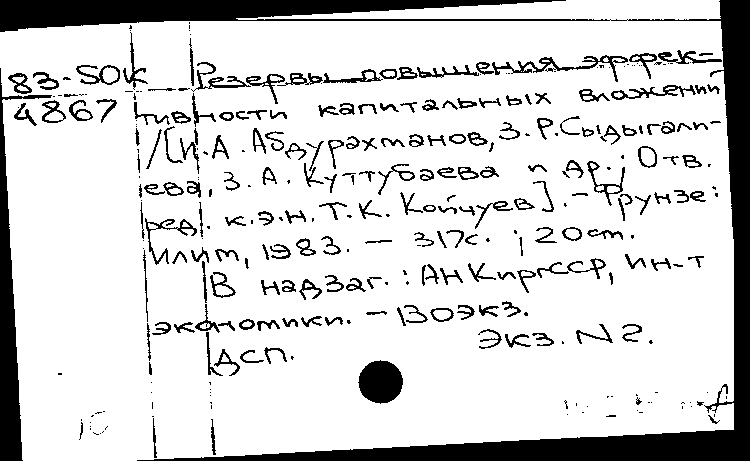 83-SOK Резервы повышения эффек-
4867 тивности капитальных вложений
/[И.А. Абдурахманов, З.Р. Сыдыгали-
ева, З.А. Куттубаева и др.; Отв.
ред. к.э.н. Т.К. Койчуев]. - Фрунзе:
Илим, 1983. - 317с. ; 20см.
В надзаг.: АН КиргССР, Ин-т
экономики. - 130экз.
ДСП. Экз. N 2.